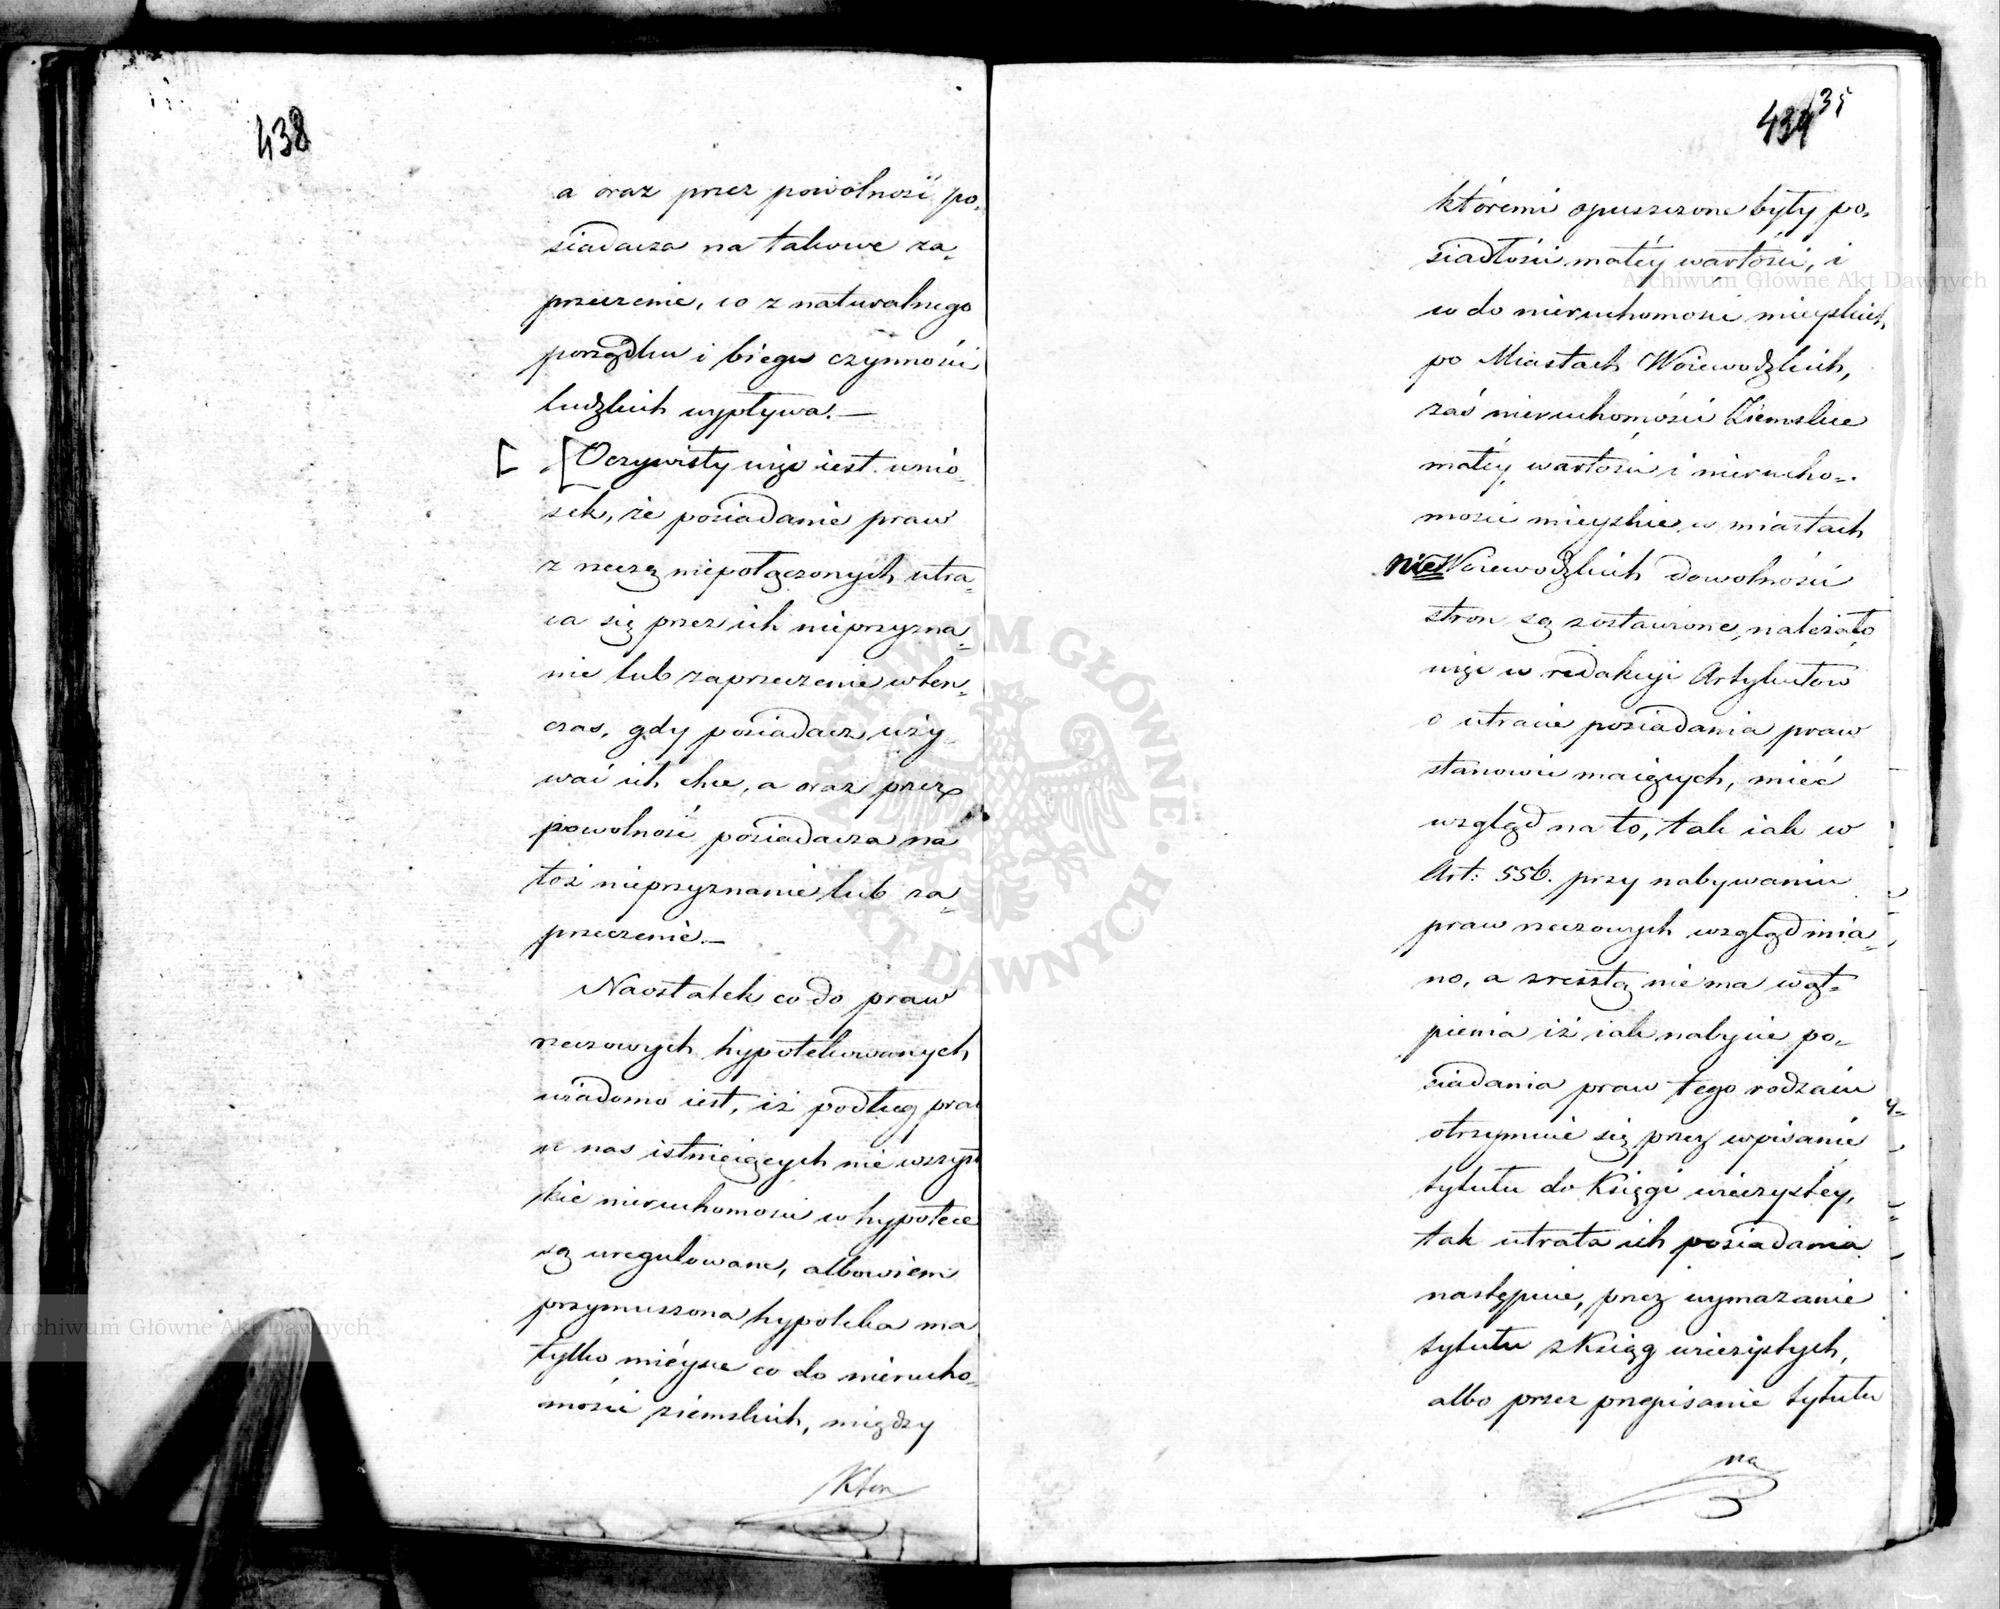 438
a oraz przez powolność po„
siadacza na takowe za„
przeczenie, co z naturalnego
porządku i biegu czynności
ludzkich wypływa.—
[ [Oczywisty więc iest wnio„
sek, że posiadanie praw
z rzeczą niepołączonych utra„
ca się przez ich nieprzyzna„
nie lub zaprzeczenie wten„
czas, gdy posiadacz uży„
wać ich chce, a oraz przez
powolność posiadacza na
toż nieprzyznanie lub za„
przeczenie.—
Naostatek co do praw
rzeczowych hypotekowanych
wiadomo iest, iż podług praw
u nas istnieiących nie wszyst
kie nieruchomości w hypotece
są uregulowane, albowiem
przymuszona hypoteka ma
tylko mieysce co do nierucho„
mości ziemskich, między
Któr
439 35
któremi opuszczone były po„
siadłości małéy wartości, i
co do nieruchomości mieyskich
po Miastach Woiewodzkich,
zaś nieruchomości Ziemskie
małéy wartości i nierucho„
mości mieyskie w miastach
nieWoiewodzkich dowolności
stron są zostawione, należało
więc w redakcyi Artykułów
o utracie posiadania praw
stanowić maiących, mieć
wzgląd na to, tak iak w
Art: 556. przy nabywaniu
praw rzeczowych wzgląd mia„
no, a zresztą nie ma wąt„
pienia iż iak nabycie po„
siadania praw tego rodzaiu
otrzymuie się przez wpisanie
tytułu do Księgi wieczystéy,
tak utrata ich posiadania
następuie, przez wymazanie
tytułu z Ksiąg wieczystych,
albo przez przepisanie tytułu
na
Archiwum Główne Akt Dawnych
Archiwum Główne Akt Dawnych
ARCHIWUM GŁÓWNE AKT DAWNYCH